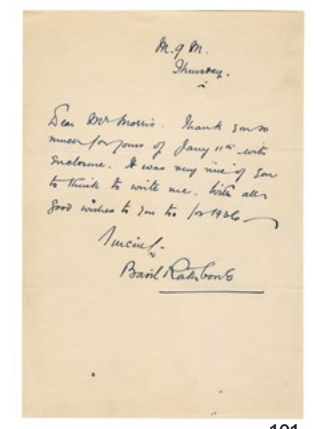 M.G.M.
Thursday.
Dear Mr Morris. Thank you so
much for yours of Jany 11th with
enclosure. It was very nice of you
to think to write me. With all
good wishes to you too for 1936
Sincerely
Basil Rathbone
101